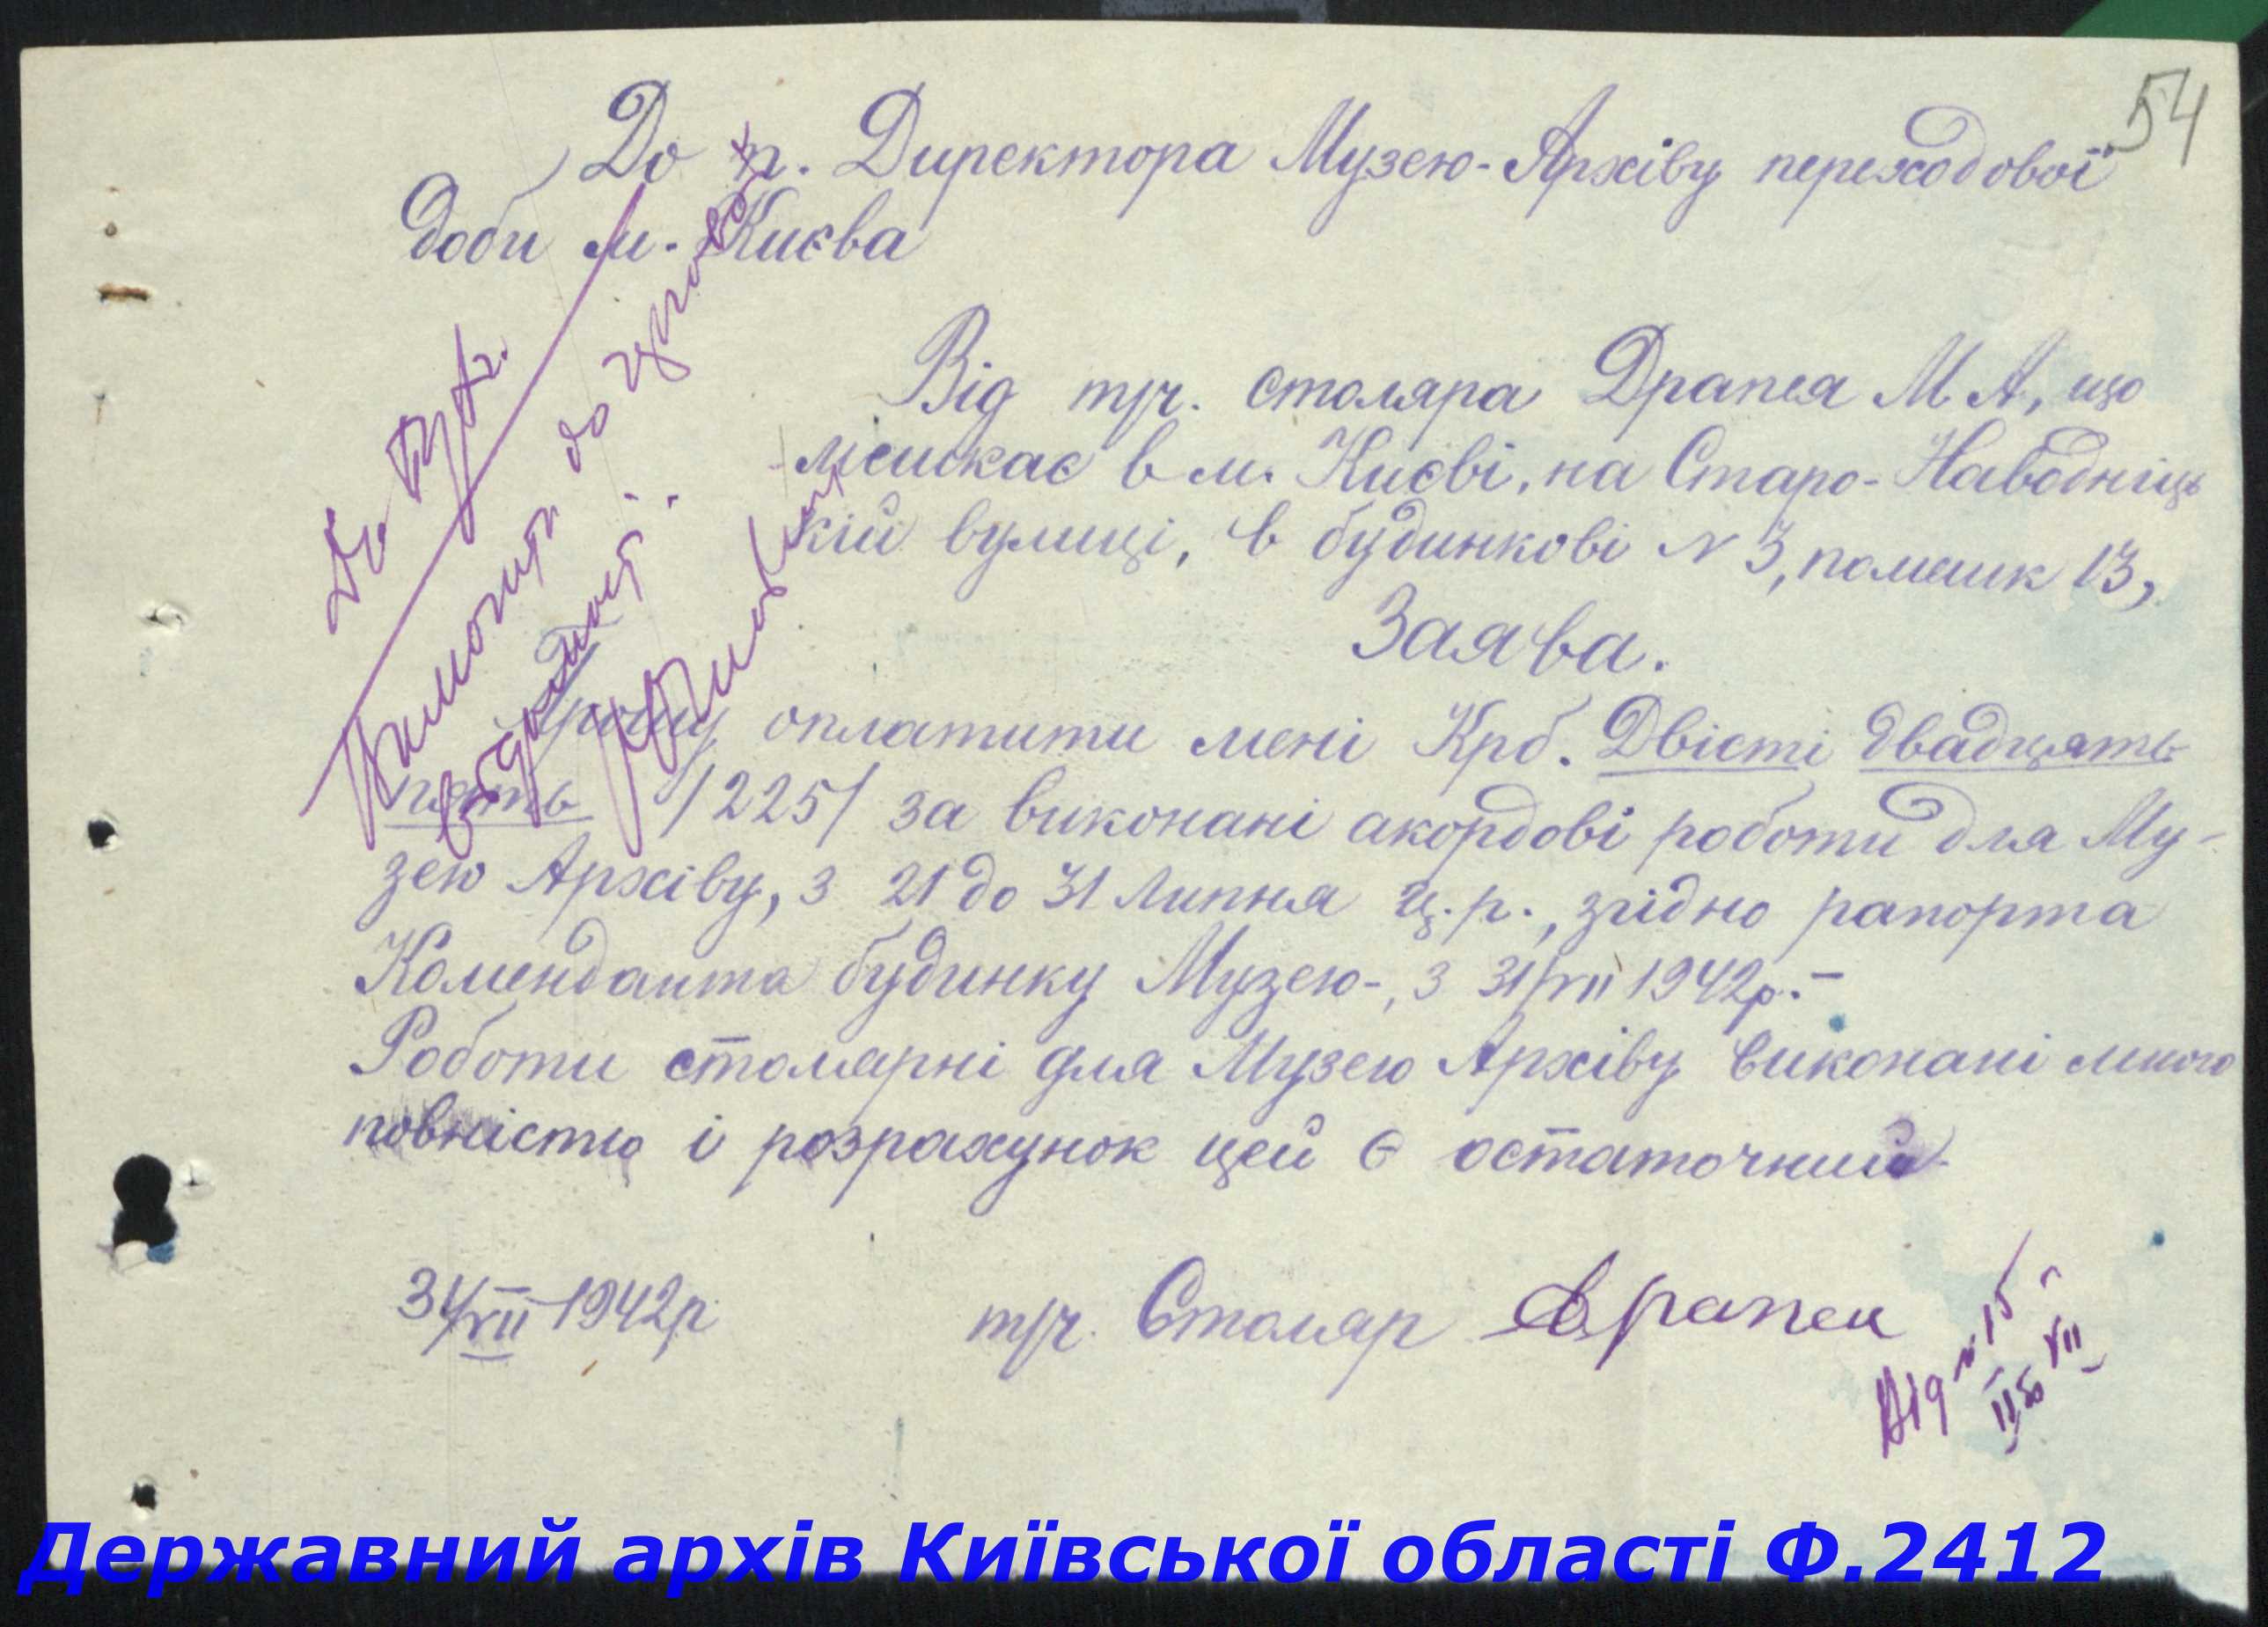 54
До п. Директора Музею-Архіву переходової
доби м. Києва
Від тр. столяра Драпея М. А, що
мешкає в м. Києві, на Старо-Наводніць
кій вулиці, в будинкові N 3, помешк 13,
Заява.
Прошу оплатити мені Крб. Двісті двадцять
пять /225/ за виконані акордові роботи для Му-
зею Архіву, з 21 до 31 Липня ц.р., згідно рапорта
Коменданта будинку Музею-, з 31/VII 1942р.-
Роботи столярні для Музею Архіву виконані мною
повністю і розрахунок цей є остаточний
31/VII 1942р
Столяр Драпей
До
до
Державний архів Київської області Ф.2412